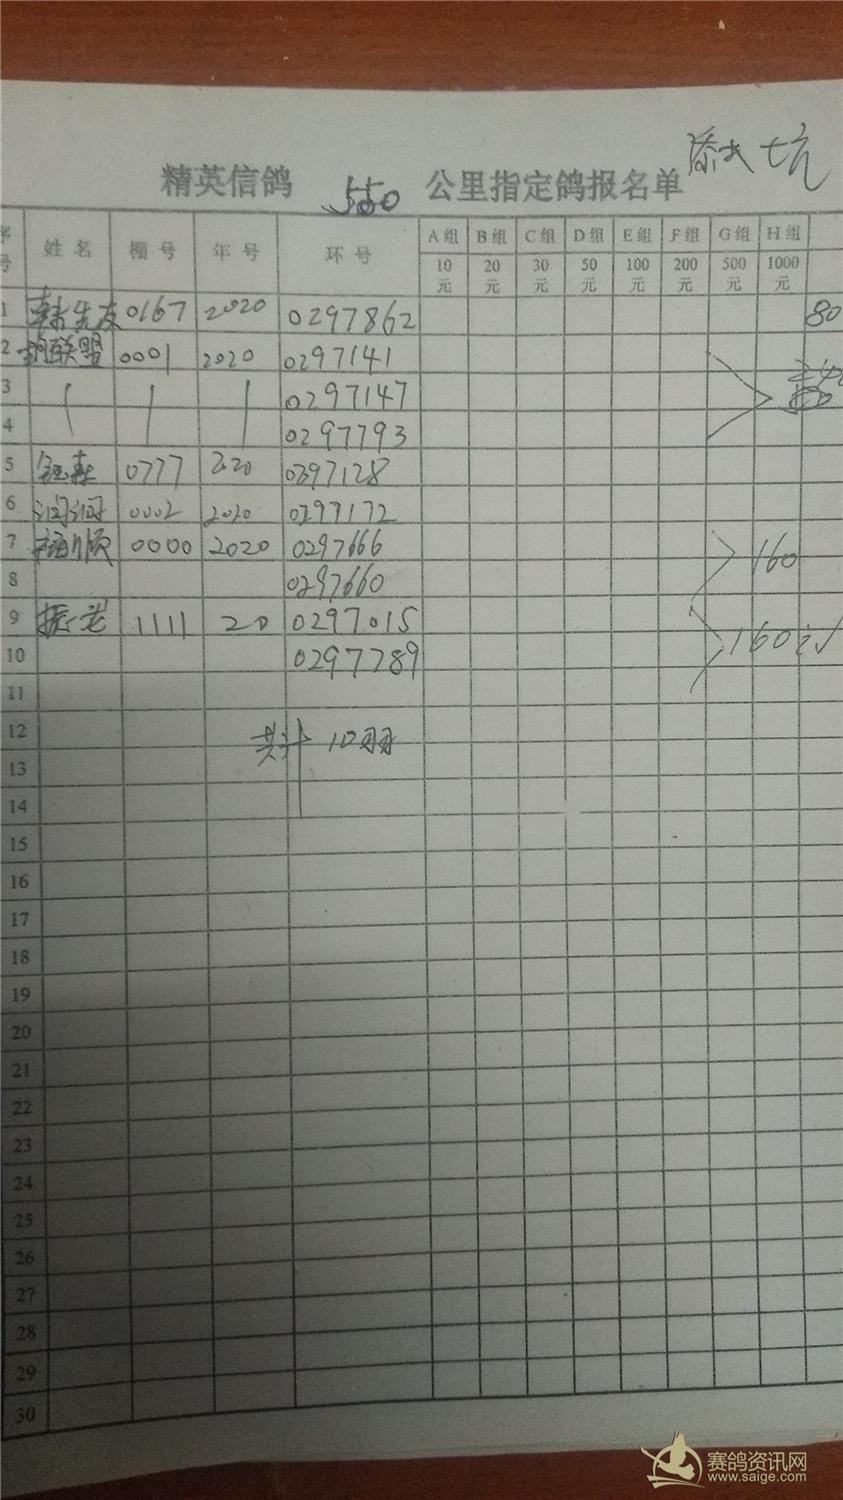 精英信鸽 550 公里指定鸽报名单
号 姓名 棚号 年号 环号 A组 B组 C组 D组 E组 F组 G组 H组
10元 20元 30元 50元 100元 200元 500元 1000元
1 0167 2020 0297862 80
2 联盟 0001 2020 0297141
3 0297147
4 0297793
5 0777 2020 0297128
6 润润 0002 2020 0297172
7 0000 2020 0297666 160
8 0297660
9 1111 20 0297015 160
10 0297789
11
12 共计 10羽
13
14
15
16
17
18
19
20
21
22
23
24
25
26
27
28
29
30
赛鸽资讯网
www.saige.com